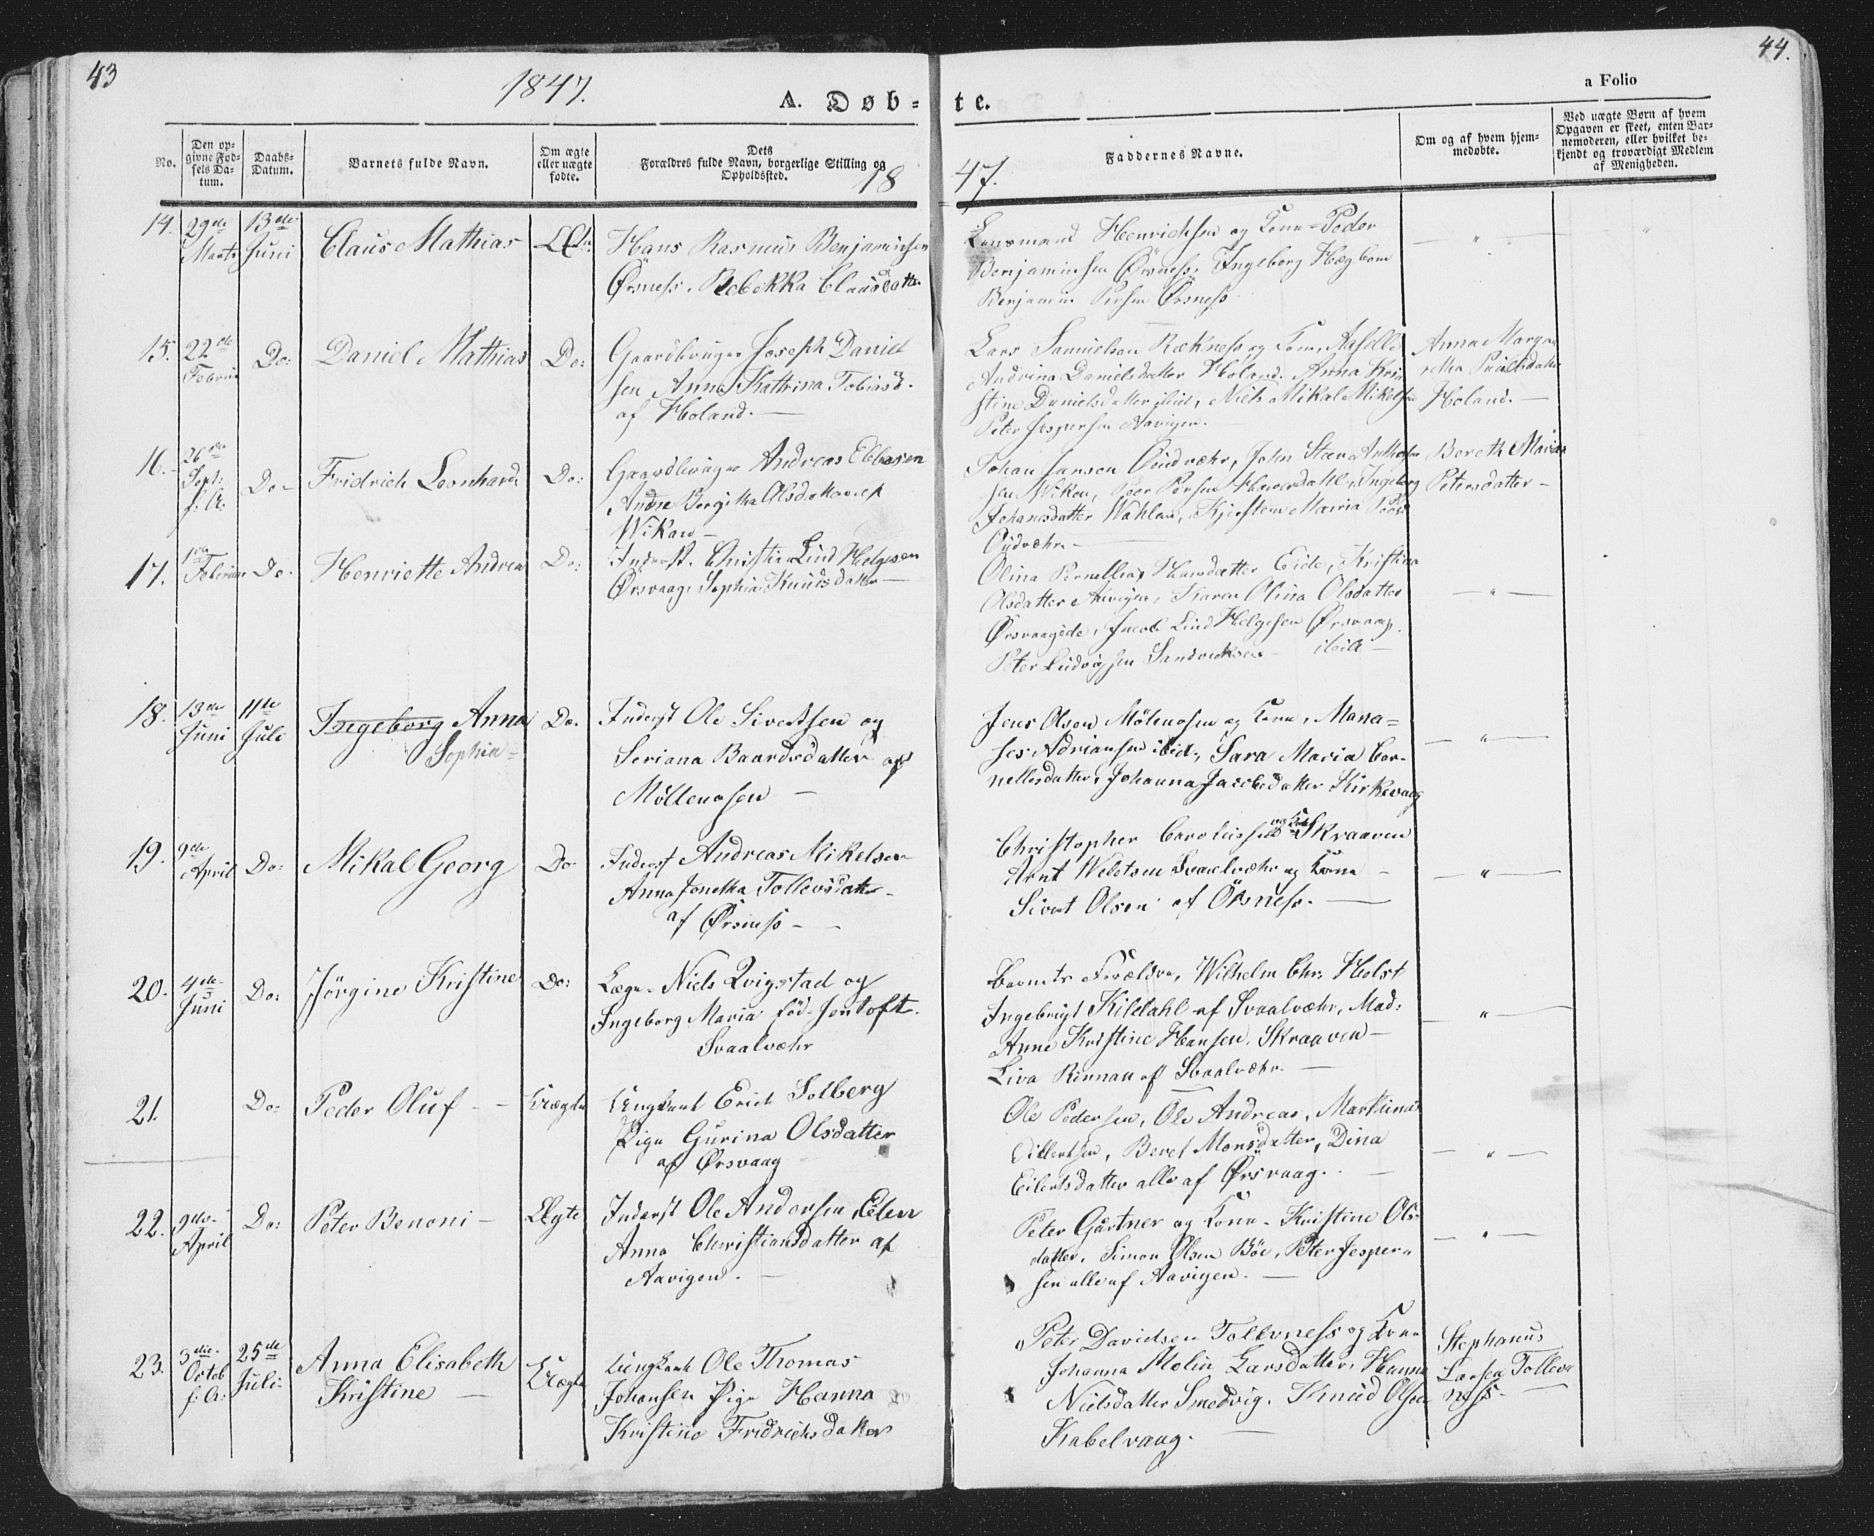 43
1847.
A. Døb-
te.
a Folio
44.
No.
Den op-
givne Fød-
sels Da-
tum.
Daabs-
Datum.
Barnets fulde Navn.
Om ægte
eller uægte
fødte.
Dets
Forældres fulde Navn, borgerlige Stilling og
Opholdssted.
18
47.
Faddernes Navne.
Om og af hvem hjem-
medøbte.
Ved uægte Børn af hvem
Opgaven er skeet, enten Bar-
nemoderen, eller hvilket be-
kjendt og troværdigt Medlem
af Menigheden.
14. 29de Marts 13de Juni Claus Mathias
Hans Rasmus Benjaminsen
Ørsness. Rebekka Clausdatter
Lensmand Henrichsen og Kone Peder
Benjaminsen Ørsness, Ingeborg
Benjamin Ørsness.
15. 22de Februar Do: Daniel Mathias Do:
Gaardbruger Joseph Daniel
sen Anna Kathrina Tobiasd.
af Holand.
Lars Samuelsen Rækness og Kone,
Andrina Danielsdatter Holand. Anna Kri
stine Danielsdatter ibid, Niels Mikal Mikelsen
Peter Jespersen Aavigen.
Anna Marga
retha
Holand.
16. 26de Sept: f. A: Do Fridrich Leonhard Do:
Gaardbruger Andreas Ebbesen
Wikan
Johan Jansen Gudvæhr, John
Wikan, Peder Persen Ingeborg
Johanesdatter Kjersten Maria
Gudvæhr.
Bereth Maria
Petersdatter
17. 1ste Februar Do Henriette Andrea Do:
Inderst. Lind Helgesen
Ørsvaag, Sophia Knudsdatter
Olina Hansdatter Eide, Kristina
Olsdatter Aavigen, Karen Olina Olsdatter
Jacob Lind Helgesen Ørsvaag.
Peter Ludvigsen ibid
18. 13de Juni 11te Juli Ingeborg Anna Do.
Sophia
Inderst Ole Sivertsen og
Seriana Baardsdatter af
Möllenosen
Jens Olsen Mölenosen og Kone, Mana-
ses Adriansen ibid, Sara Maria Cor-
neliesdatter, Johanna Jacobsdatter Kirkevaag
19. 9de April Do: Mikal Georg Do
Inderst Andreas Mikelsen
Anna Jonetha Tollevsdatter
af Ørsness
Christopher Skraaven
Arnt Svaalvæhr og Kone
Sivert Olsen af Örsness.
20. 4de Juni Do: Jörgine Kristine Do:
Læge Niels Qvigstad og
Ingeborg Maria fød Jentoft.
Svaalvæhr
Barnets Forældre, Wilhelm Chr. Holst
Ingebrigt Kildahl af Svaalvæhr, Mad:
Anne Kristine Hansen, Skraaven
Liva Rinnan af Svaalvæhr.
21. Do: Peder Oluf Uægte
Ungkarl Erich Solberg
Pige Gurina Olsdatter
af Ørsvaag
Ole Pedersen, Ole Andreas, Martinus
Eilertsen, Beret Monsdatter, Dina
Eilertsdatter alle af Ørsvaag.
22. 9de April Do: Peter Benoni Ægte
Inderst Ole Andersen, Elen
Anna Christiansdatter af
Aavigen.
Peter Gartner og Kone. Kristine Ols
datter, Simon Olsen Böe, Peter Jesper-
sen alle af Aavigen.
23. 3die Octob f. A: 25de Juli Anna Elisabeth Uægte
Kristine
Ungkarl Ole Thomas
Johansen Pige Hanna
Kristine Fridrichsdatter
Peter Davidsen Tollevness og Kone
Johanna Malin Larsdatter, Hanna
Nielsdatter Smedvig. Knud Olsen
Kabelvaag.
Stephanus
Larsen Tollev
ness.